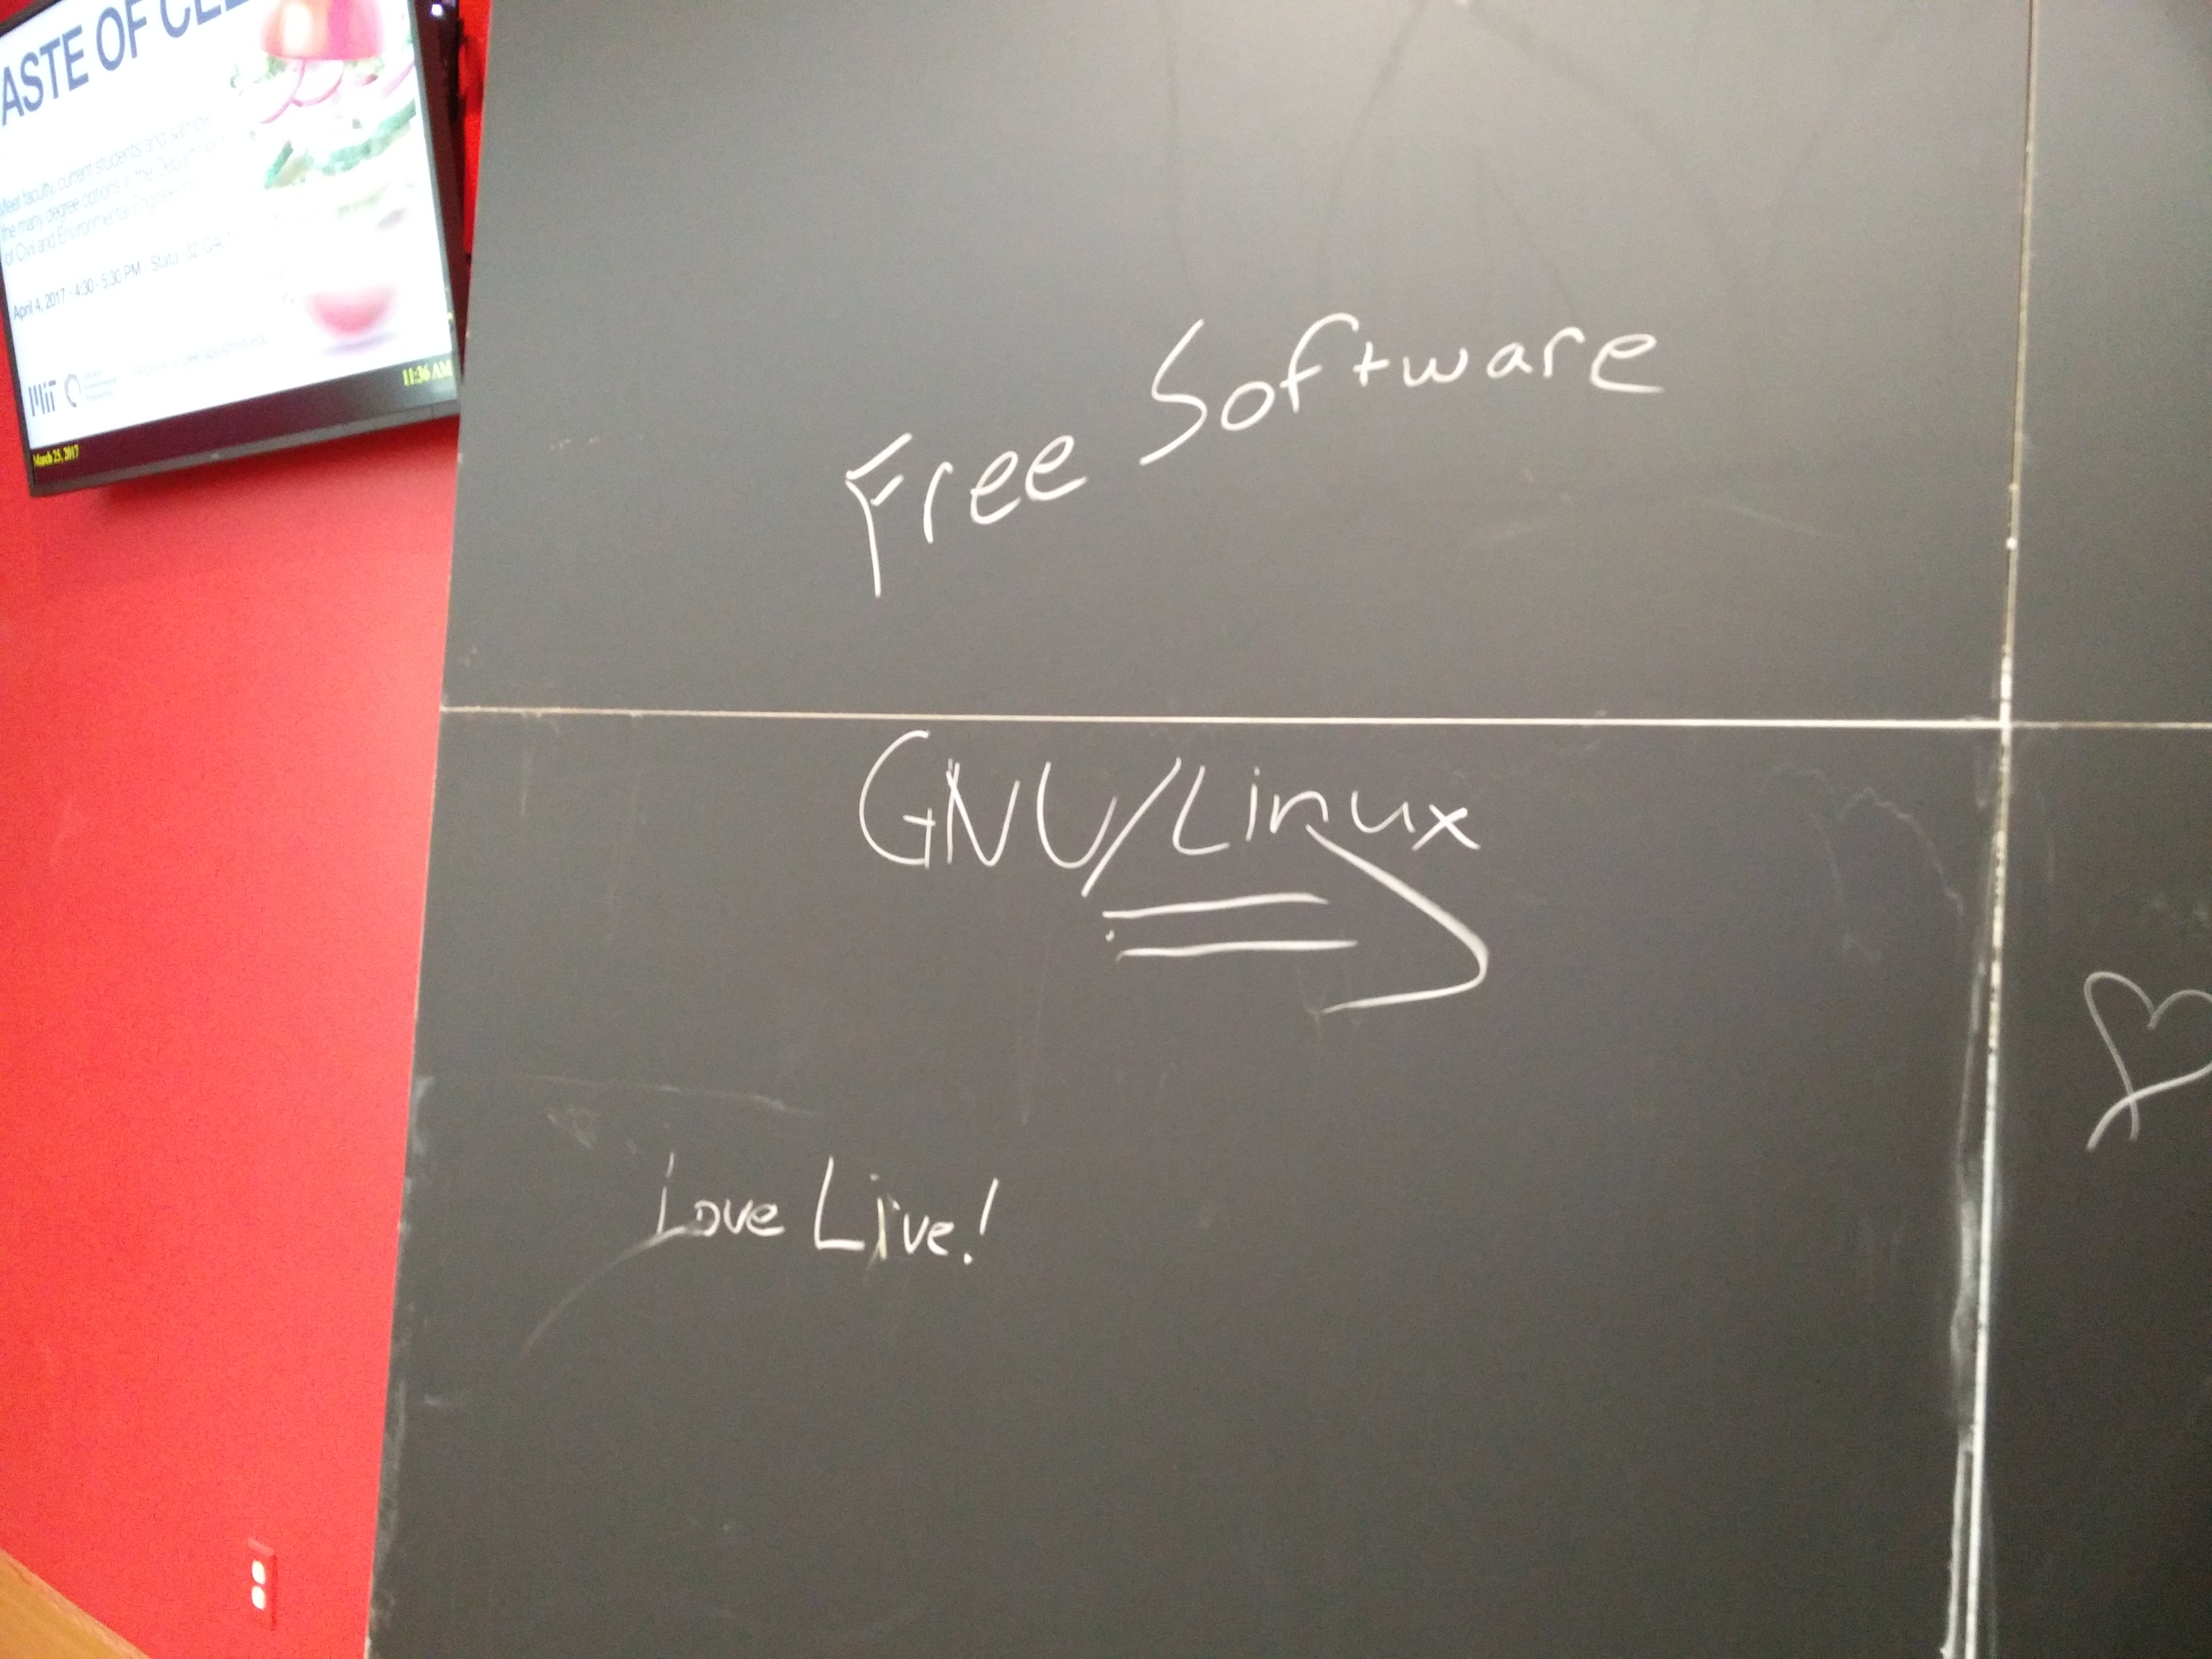 ASTE OF
Meet faculty, current students and sample
the many degree options in the Department
of Civil and Environmental Engineering
April 4, 2017 · 4:30 - 5:30 PM ·
MIT
11:36 AM
March 25, 2017
Free Software
GNU/Linux
Love Live!